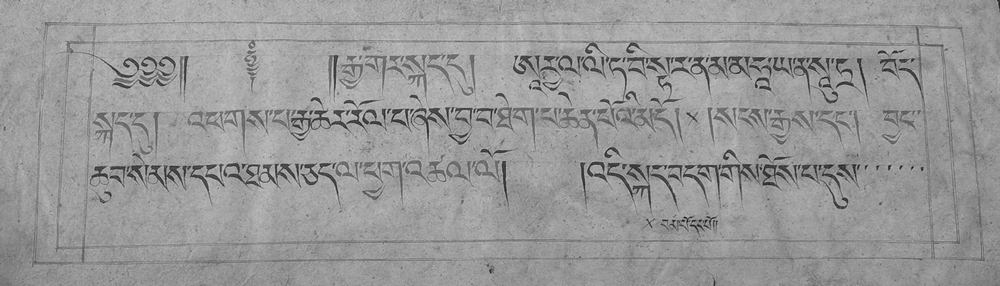 ༄༅༅༅།། །།རྒྱ་གར་སྐད་དུ། ཨཱརྱ་ལ་ལི་ཏ་བི་སྟ་ར་ན་མ་མ་ཧཱ་ཡ་ན་སཱུ་ཏྲ། བོད་
སྐད་དུ། འཕགས་པ་རྒྱ་ཆེར་རོལ་པ་ཞེས་བྱ་བ་ཐེག་པ་ཆེན་པོའི་མདོ× །སངས་རྒྱས་དང་། བྱང་
ཆུབ་སེམས་དཔའ་ཐམས་ཅད་ལ་ཕྱག་འཚལ་ལོ། །འདི་སྐད་བདག་གིས་ཐོས་པ་དུས་་་་་་་
× བམ་པོ་དང་པོ།།